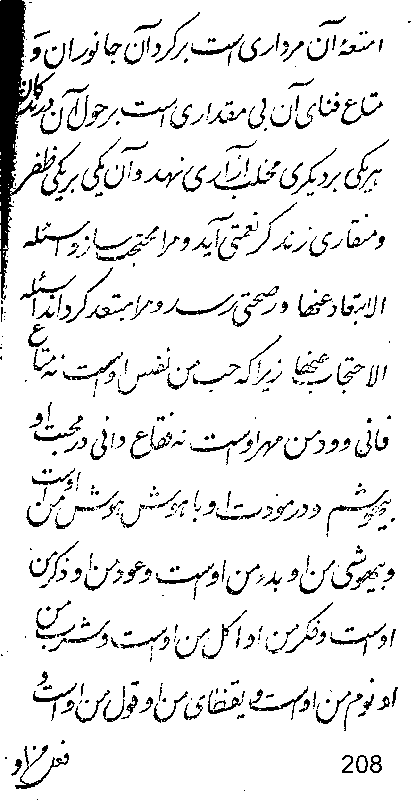 امتعهٔ آن مرداری است برکرد آن جانوران و
متاع فنای آن بی مقداری است بر حول آن درندکان
هر یکی بر دیکری مخلب آزاری نهد و آن یکی بر یکی ظفر
و منقاری زند کر نعمتی آید و مرا محتجب سازد اسئله
الابتعاد عنها ور صحتی رسد و مرا مبتعد کرداند اسئله
الاحتجاب عنها زیرا که حب من نفس اوست نه متاع
فانی و ود من مهر اوست نه فقاع دانی در محبت او
بیهوشم و در مودت او با هوش هوش من اوست
و بیهوشی من او بدء من اوست و عود من او ذکر من
اوست و فکر من او اکل من اوست و شرب من
او نوم من اوست و یقظای من او قول من اوست و
فعل من او
208